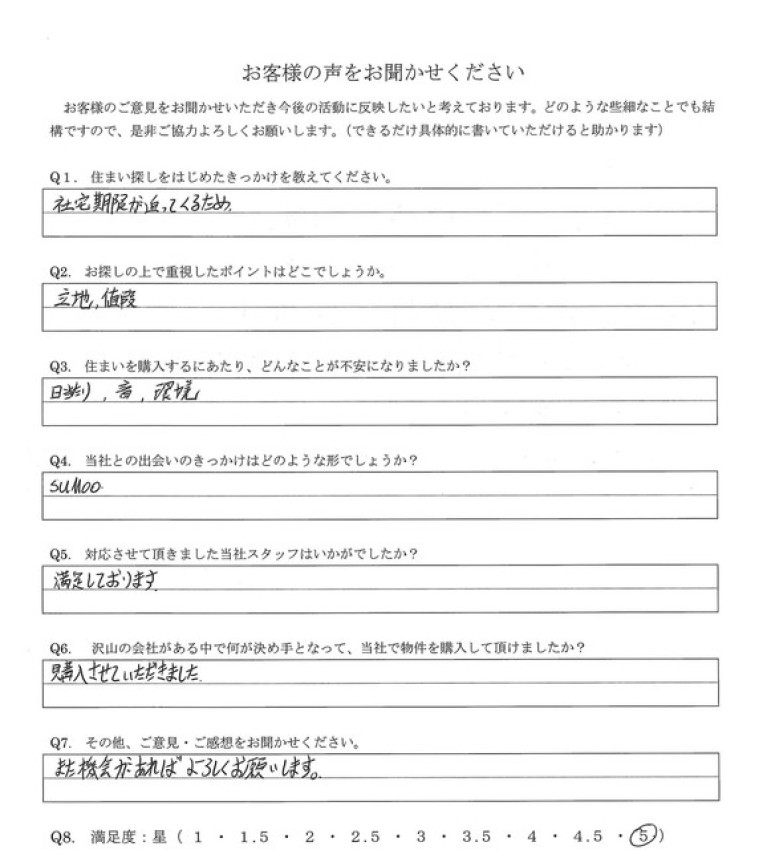 お客様の声をお聞かせください
お客様のご意見をお聞かせいただき今後の活動に反映したいと考えております。どのような些細なことでも結
構ですので、是非ご協力よろしくお願いします。（できるだけ具体的に書いていただけると助かります）
Q1. 住まい探しをはじめたきっかけを教えてください。
社宅期限が迫ってくるため.
Q2. お探しの上で重視したポイントはどこでしょうか。
立地,値段
Q3. 住まいを購入するにあたり、どんなことが不安になりましたか？
日当り,音,環境
Q4. 当社との出会いのきっかけはどのような形でしょうか？
SUMOO
Q5. 対応させて頂きました当社スタッフはいかがでしたか？
満足しております.
Q6. 沢山の会社がある中で何が決め手となって、当社で物件を購入して頂けましたか？
購入させていただきました.
Q7. その他、ご意見・ご感想をお聞かせください。
また機会があればよろしくお願いします。
Q8. 満足度：星（ 1 ・ 1.5 ・ 2 ・ 2.5 ・ 3 ・ 3.5 ・ 4 ・ 4.5 ・ 5 ）